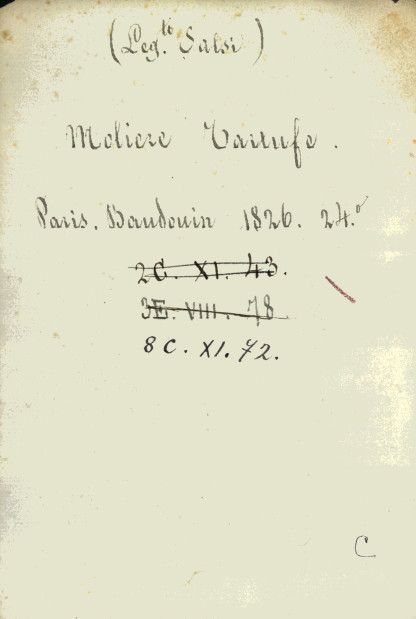 (Leg.to Salsi)
Moliere Tartufe.
Paris. Baudouin 1826. 24.o
2C. XI. 43.
3E. VIII. 78
8 C. XI. 72.
C